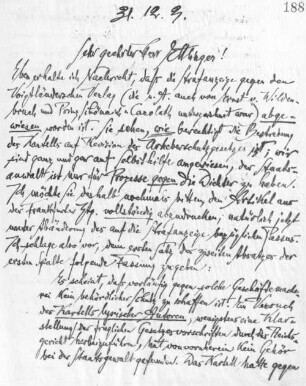 188
31. 12. 9.
Sehr geehrter Herr Ettlinger!
Eben erhalte ich Nachricht, daß die Strafanzeige gegen den
Voigtländerschen Verlag (die u. A. auch von Ernst v. Wilden-
bruch und Prinz Schönaich-Carolath unterzeichnet war) abge-
wiesen worden ist. Sie sehen, wie berechtigt die Bestrebung
des Kartells auf Revision des Urheberschutzgesetzes ist; wir
sind ganz und gar auf Selbsthilfe angewiesen, der Staats-
anwalt ist nur für Prozesse gegen die Dichter zu haben.
Ich möchte Sie deshalb nochmals bitten, den Artikel aus
der Frankfurter Ztg. vollständig abzudrucken; natürlich jetzt
unter Abänderung des auf die Strafanzeige bezüglichen Passus.
Ich schlage also vor, dem ersten Satz des zweiten Absatzes der
ersten Spalte folgende Fassung zu geben:
Es scheint, daß vorläufig gegen solche Geschäftemache-
rei kein behördlicher Schutz zu schaffen ist. Der Versuch
des Kartells lyrischer Autoren, wenigstens eine Klar-
stellung der fraglichen Gesetzesvorschriften durch das Reichs-
gericht herbeizuführen, hat von vornherein kein Gehör
bei der Staatsanwalt gefunden. Das Kartell hatte gegen